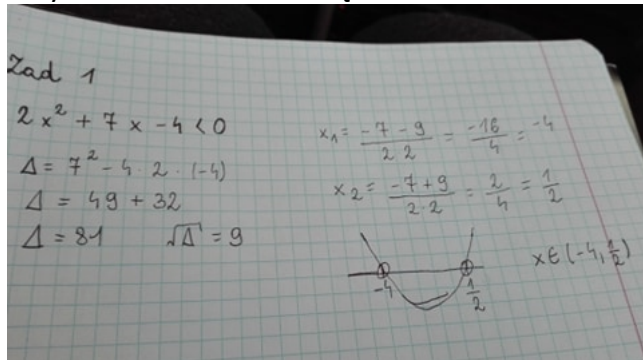 Zad 1
2x² + 7x - 4 < 0
Δ = 7² - 4 · 2 · (-4)
Δ = 49 + 32
Δ = 81 √Δ = 9
x₁ = \frac{-7 - 9}{2 2} = \frac{-16}{4} = -4
x₂ = \frac{-7 + 9}{2 · 2} = \frac{2}{4} = \frac{1}{2}
-4
\frac{1}{2}
x ∈ (-4, \frac{1}{2})